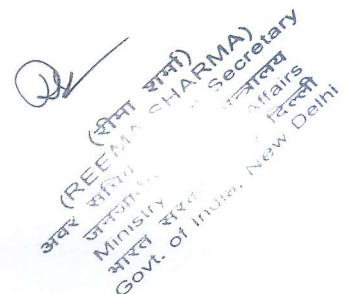 (रीमा शर्मा)
(REEMA SHARMA)
अवर सचिव Secretary
Ministry Affairs
भारत सरकार दिल्ली
Govt. of India, New Delhi